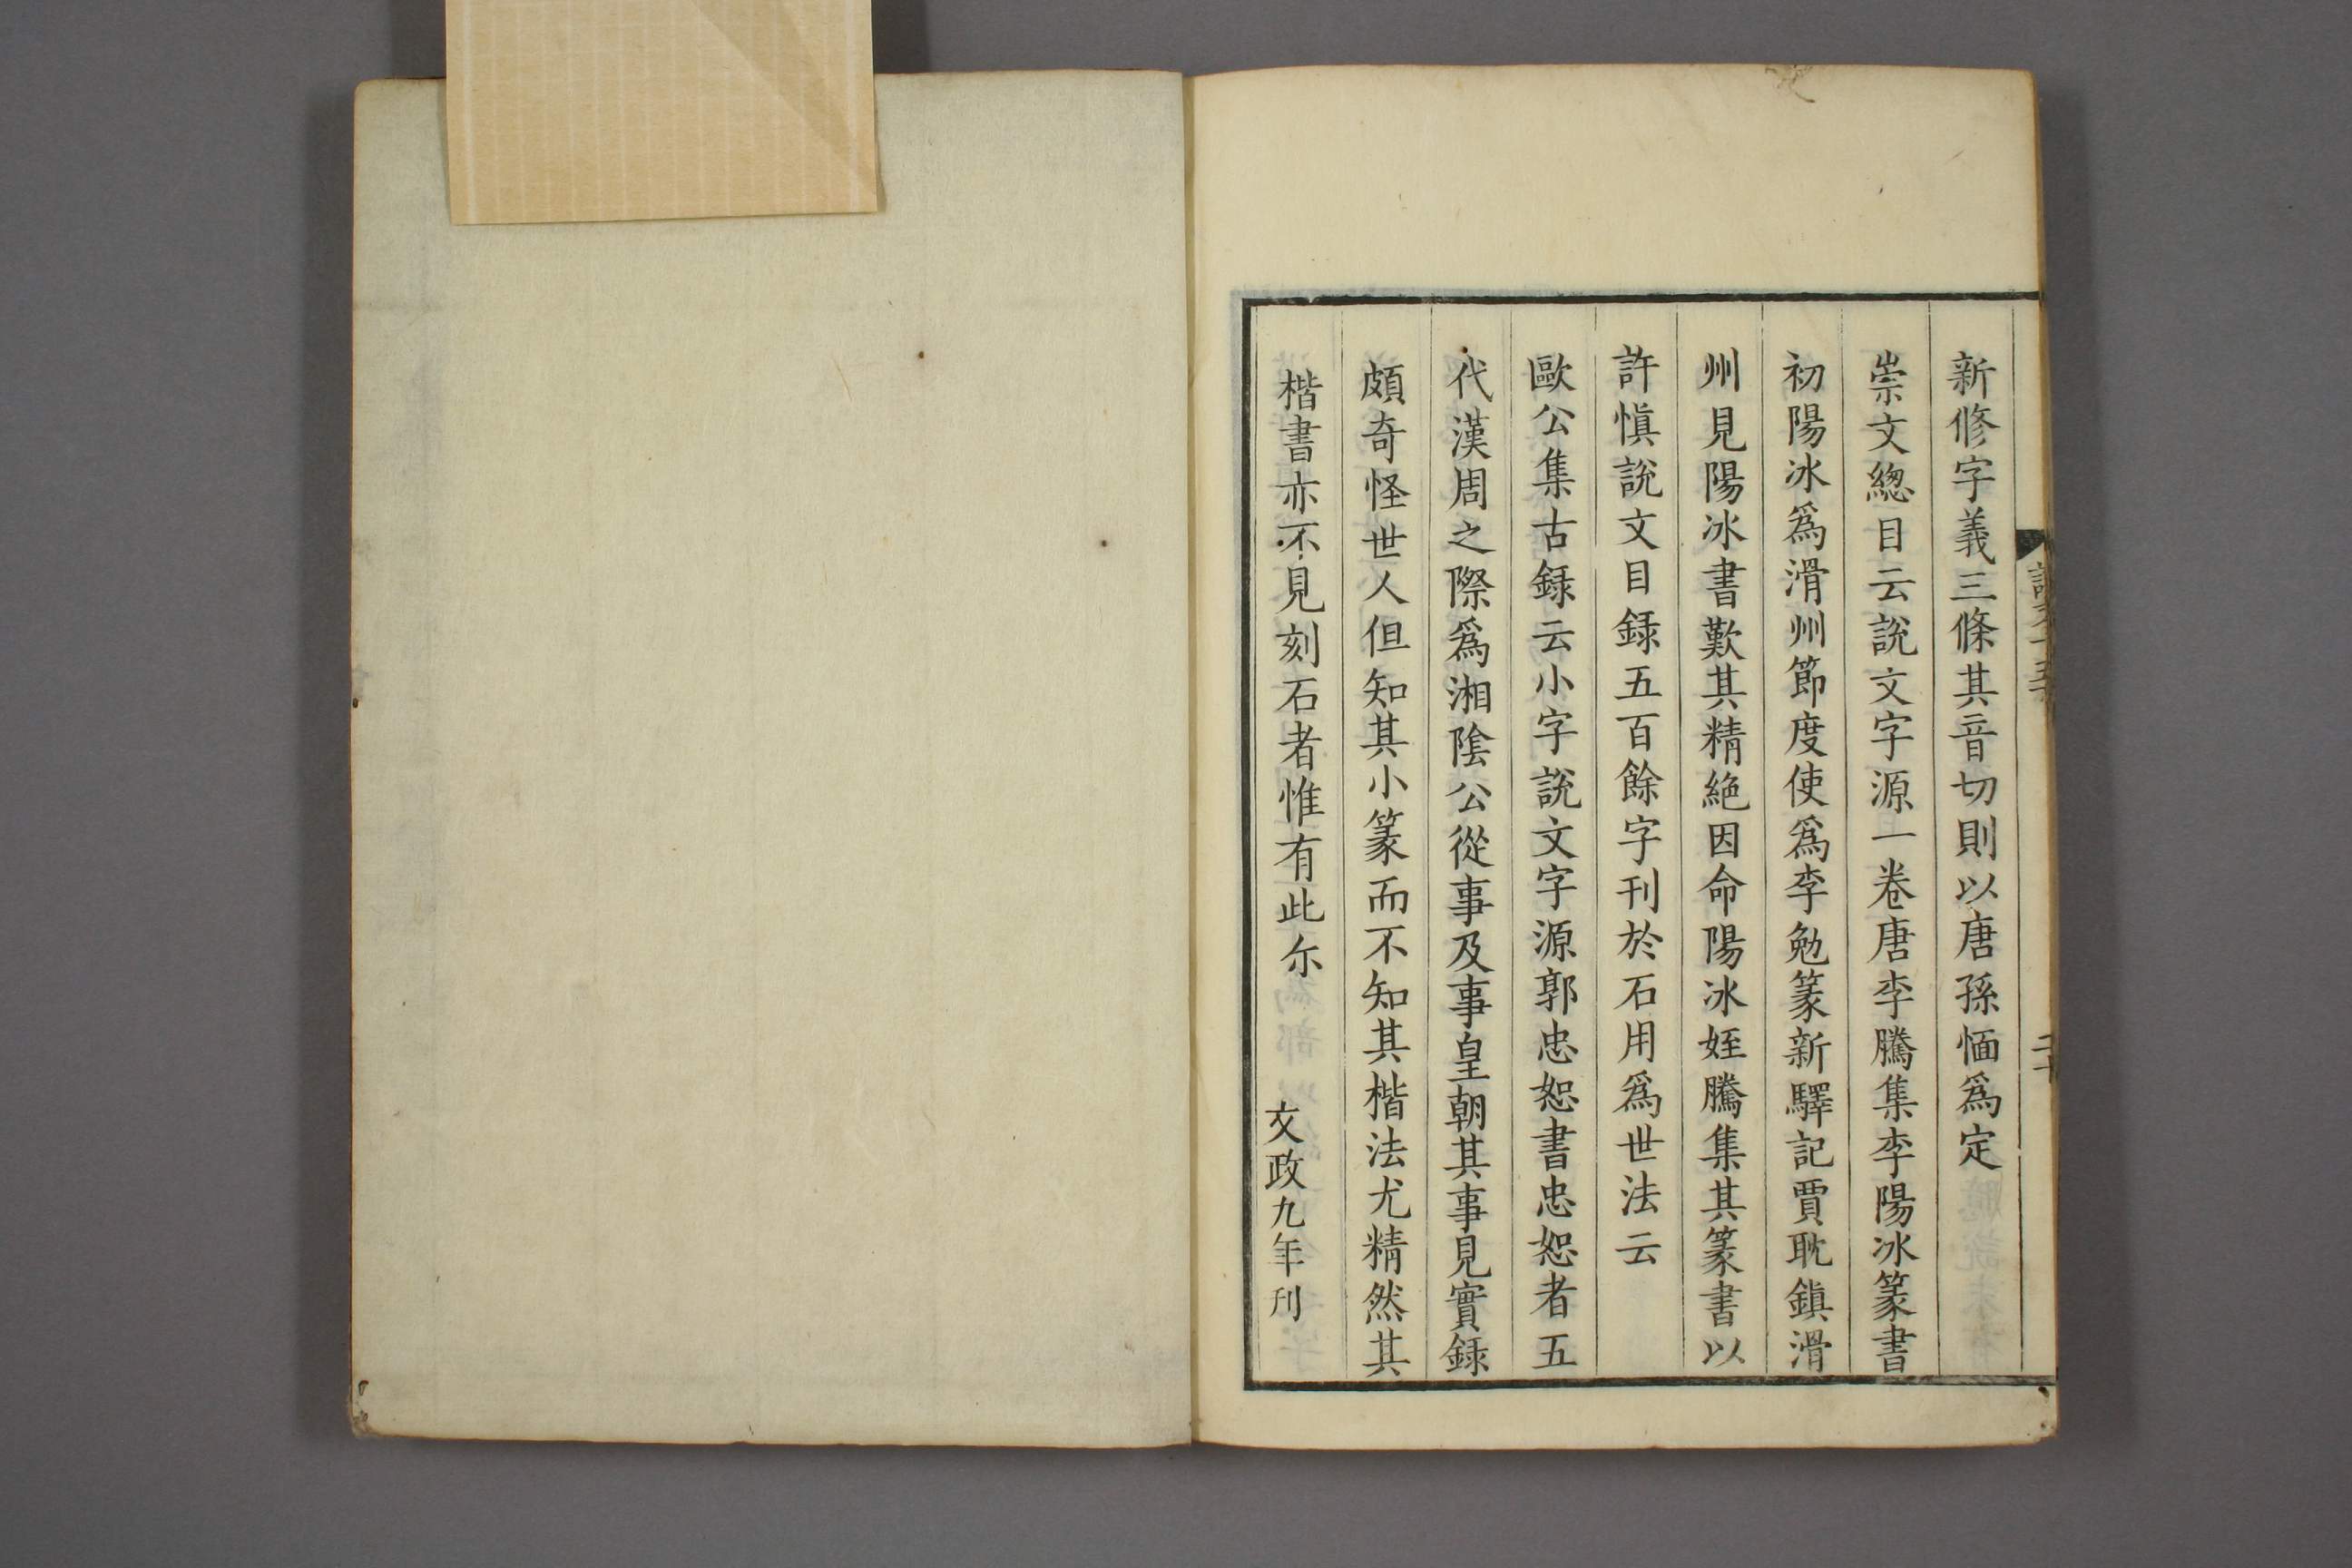 新修字義三條其音切則以唐孫愐爲定
崇文緫目云說文字源一卷唐李騰集李陽冰篆書
初陽冰爲滑州節度使爲李勉篆新驛記賈耽鎮滑
州見陽冰書歎其精絶因命陽冰姪騰集其篆書以
許愼說文目録五百餘字刊於石用爲世法云
歐公集古録云小字說文字源郭忠恕書忠恕者五
代漢周之際爲湘陰公從事及事皇朝其事見實録
頗奇怪世人但知其小篆而不知其楷法尤精然其
楷書亦不見刻石者惟有此尓
文政九年刊